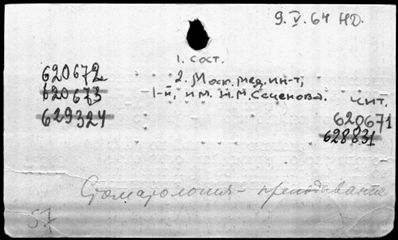 9.V.64 НО.
1. сост.
620672
2. Моск. мед. ин-т,
620673
1-й, им. И.М. Сеченова.
чит.
629324
620671
628831
Стоматология - преподавание
57